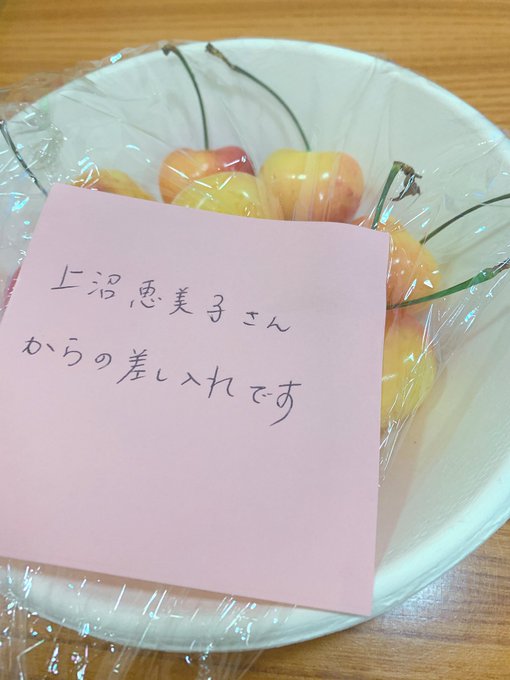 上沼恵美子さん
からの差し入れです